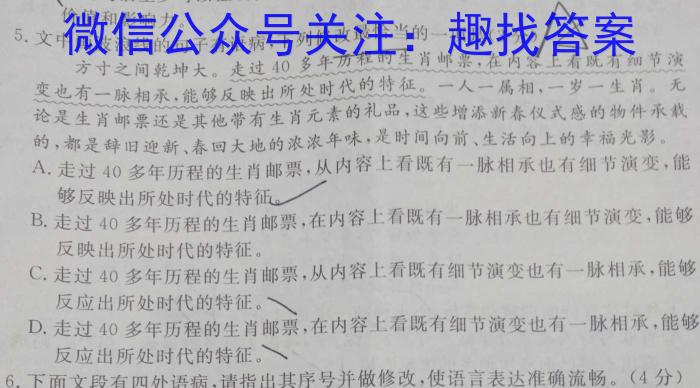 价值和影响力
微信公众号关注：趣找答案
5. 文中画波浪线的句子有语病，下列修改最恰当的一
方寸之间乾坤大。走过 40 多年历程的生肖邮票，在内容上看既有细节演
变也有一脉相承，能够反映出所处时代的特征。一人一属相，一岁一生肖。无
论是生肖邮票还是其他带有生肖元素的礼品，这些增添新春仪式感的物件承载
的，都是辞旧迎新、春回大地的浓浓年味，是时间向前、生活向上的幸福光影。
A. 走过 40 多年历程的生肖邮票，从内容上看既有一脉相承也有细节演变，能
够反映出所处时代的特征。
B. 走过 40 多年历程的生肖邮票，在内容上看既有一脉相承也有细节演变，能够
反映出所处时代的特征。
C. 走过 40 多年历程的生肖邮票，从内容上看既有细节演变也有一脉相承，能够
反应出所处时代的特征。
D. 走过 40 多年历程的生肖邮票，在内容上看既有细节演变也有一脉相承，能够
反应出所处时代的特征。
6. 下面文段有四处语病，请指出其序号并做修改，使语言表达准确流畅。（4 分）